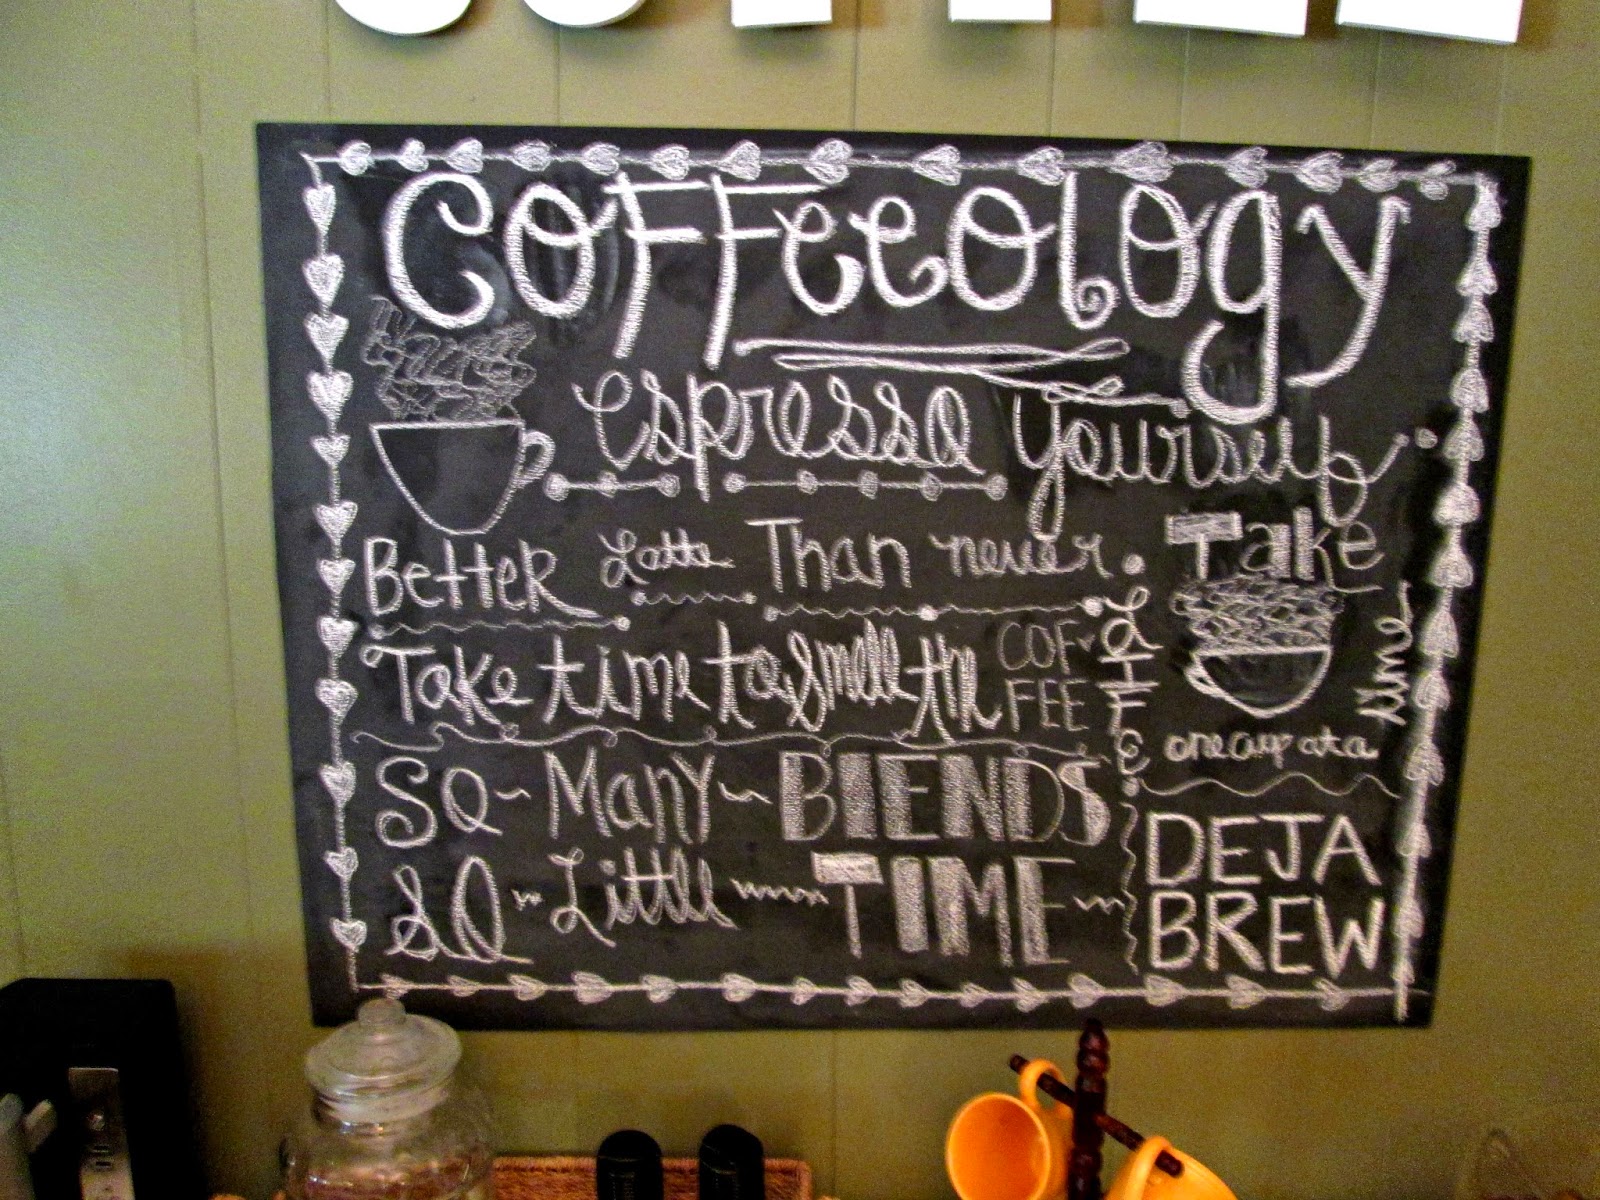 Coffeeology
espresso yourself
Better Latte Than never
Take time to smell the COFFEE
So Many BLENDS
SO Little TIME
Take
LIFE
one cup at a
time
DEJA
BREW